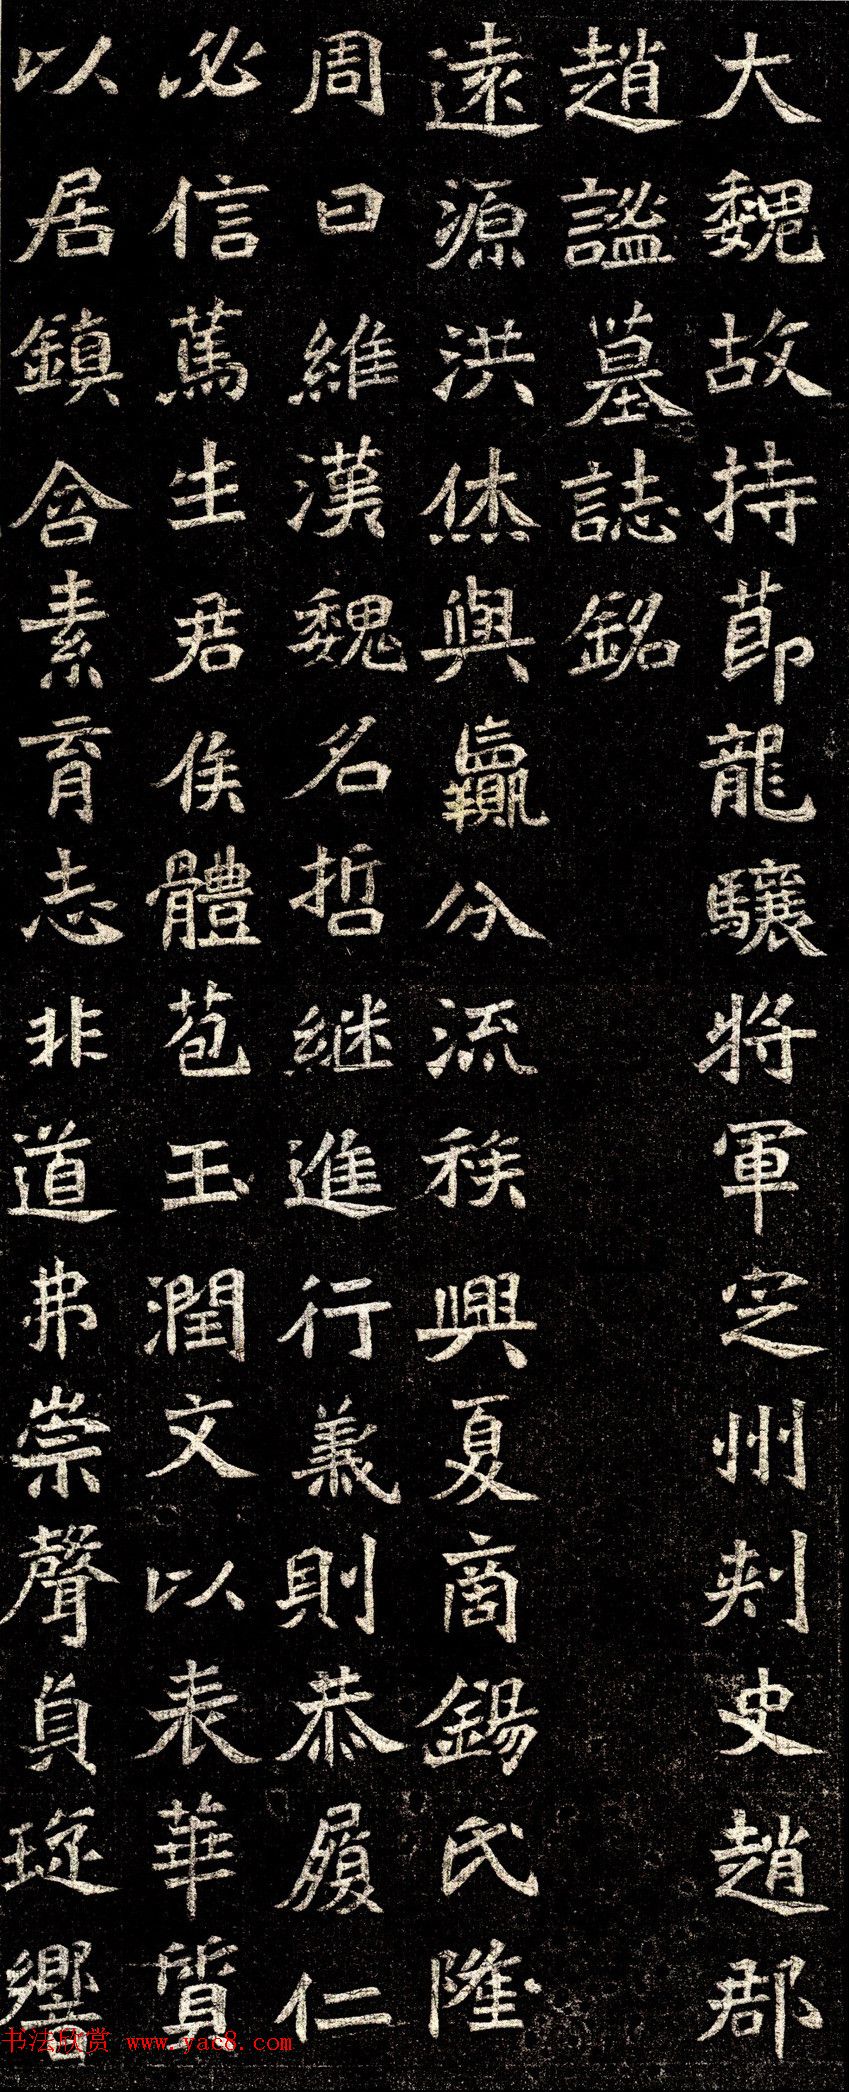 大魏故持節龍驤將軍定州刺史趙郡
趙謐墓誌銘
遠源洪休與嬴分流族興夏商錫氏隆
周曰維漢魏名哲継進行義則恭履仁
必信篤生君侯體苞玉潤文以表華質
以居鎮含素育志非道弗崇聲貞琁響
书法欣赏 www.yac8.com